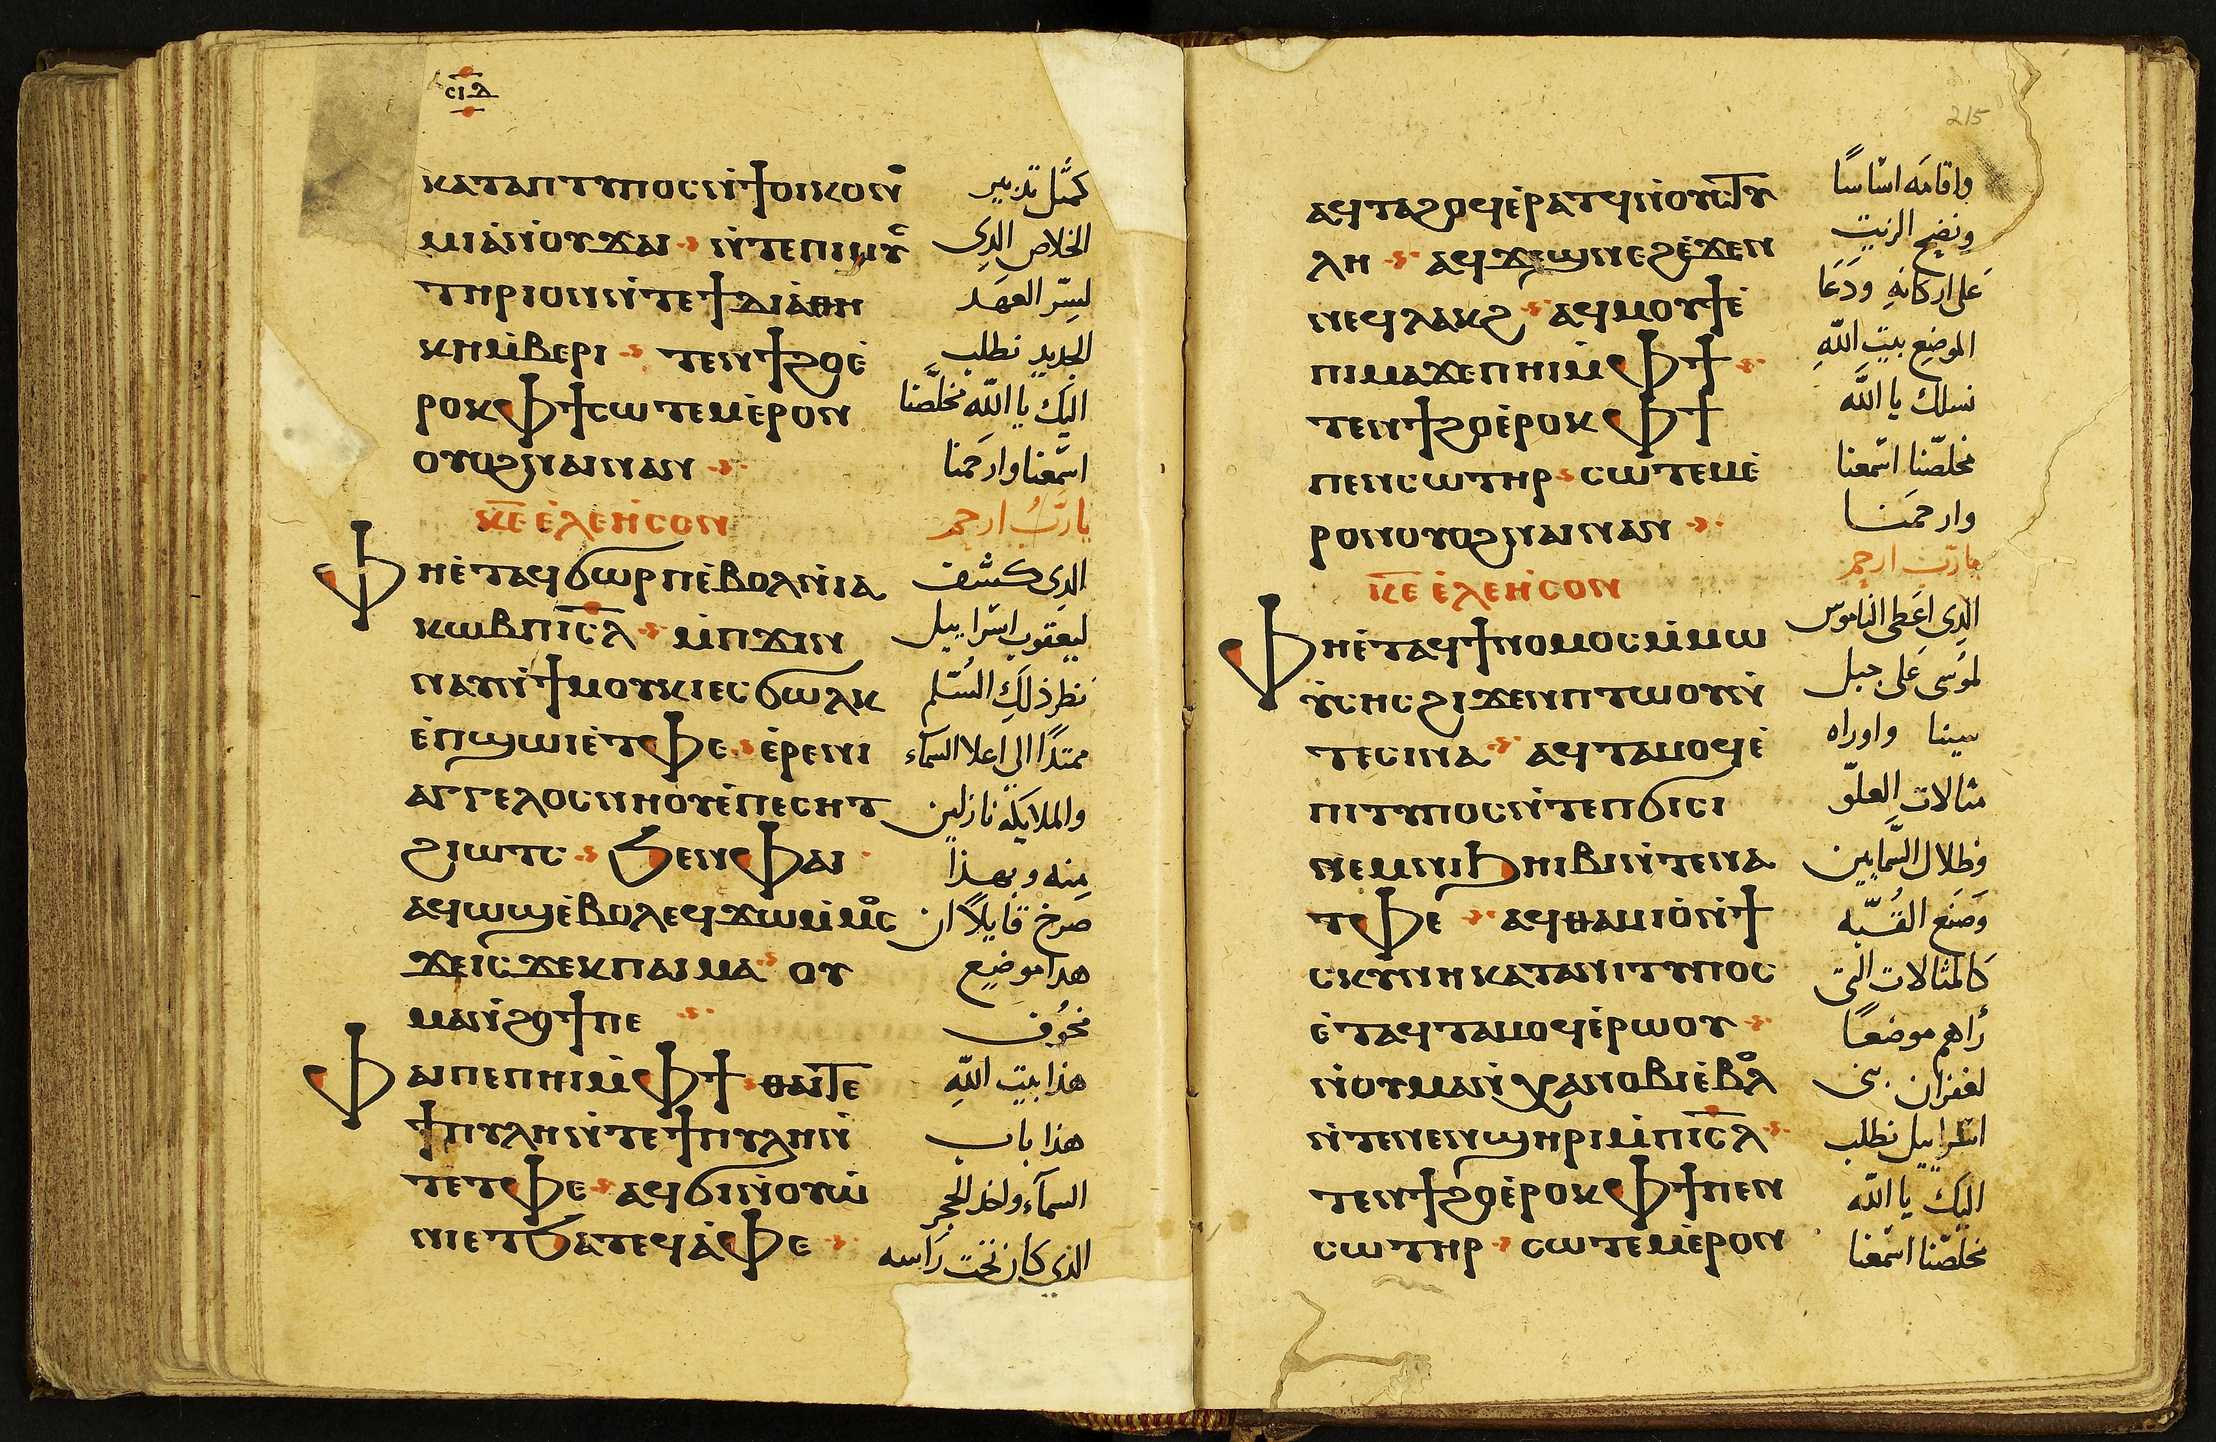 ⲥⲓⲇ
ⲕⲁⲧⲁⲡⲧⲩⲡⲟⲥⲛ̀ϯⲟⲓⲕⲟⲛⲟ
ⲙⲓⲁ̀ⲛ̀ⲟⲩϫⲁⲓ ⲛ̀ⲧⲉⲡⲓⲙⲩⲥ
ⲧⲏⲣⲓⲟⲛⲛ̀ⲧⲉϯⲇⲓⲁ̀ⲑⲏ
ⲕⲏⲙ̀ⲃⲉⲣⲓ ⲧⲉⲛϯϩⲟⲉ̀
ⲣⲟⲕⲫϯⲥⲱⲧⲉⲙⲉ̀ⲣⲟⲛ
ⲟⲩⲟϩⲛⲁⲓⲛⲁⲛ
ⲕ̅ⲉ̅ ⲉ̀ⲗⲉⲏ̀ⲥⲟⲛ
ⲫⲏⲉ̀ⲧⲁϥϭⲱⲣⲡⲉ̀ⲃⲟⲗⲛ̀ⲓⲁ
ⲕⲱⲃⲡⲓ̅ⲥ̅ⲗ ⲙ̀ⲡϫⲓⲛ
ⲛⲁⲩⲛ̀ϯⲙⲟⲩⲕⲓⲉⲥϭⲱⲗⲕ
ⲉ̀ⲡϣⲱⲓⲉ̀ⲧⲫⲉ ⲉ̀ⲣⲉⲛⲓ
ⲁⲅⲅⲉⲗⲟⲥⲛⲏⲟⲩⲉ̀ⲡⲉⲥⲏⲧ
ϩⲓⲱⲧⲥ ϧⲉⲛⲫⲁⲓ
ⲁϥⲱϣⲉ̀ⲃⲟⲗⲉϥϫⲱⲙ̀ⲙⲟⲥ
ϫⲉⲓⲥϫⲉⲕⲡⲁⲓⲙⲁ ⲟⲩ
ⲙⲁⲛ̀ϩⲟϯⲡⲉ
ⲫⲁⲓⲡⲉⲡⲏⲓⲙ̀ⲫϯ ⲑⲁⲓⲧⲉ
ϯⲡⲩⲗⲏⲛ̀ⲧⲉϯⲡⲩⲗⲏⲛ̀
ⲧⲉⲧⲫⲉ ⲁϥϭⲓⲛ̀ⲟⲩⲱ̀
ⲛⲓⲉⲧϧⲁⲧⲉϥⲁ̀ⲫⲉ
كمثل تدبير
الخلاص الذي
لسر العهد
الجديد نطلب
اليك يا الله مخلصنا
اسمعنا وارحمنا
يارب ارحم
الدي كشف
ليعقوب اسراييل
نظر ذلك السلم
ممتدا الي اعلا السماء
والملايكه نازلين
منه وبهذا
صرخ قايلا ان
هدا موضع
مخوف
هذا بيت الله
هذا باب
السماء واخد الحجر
الذي كان تحت راسه
215
ⲁϥⲧⲁϩⲟϥⲉ̀ⲣⲁⲧϥⲛ̀ⲟⲩⲥⲧⲩ
ⲗⲏ ⲁϥϫⲱϣⲛⲉϩⲉ̀ϫⲉⲛ
ⲛⲉϥⲗⲁⲕϩ ⲁϥⲙⲟⲩϯⲉ̀
ⲡⲓⲙⲁϫⲉⲡⲏⲓⲙ̀ⲫϯ
ⲧⲉⲛϯϩⲟⲉ̀ⲣⲟⲕⲫϯ
ⲡⲉⲛⲥⲱⲧⲏⲣ ⲥⲱⲧⲉⲙⲉ̀
ⲣⲟⲛⲟⲩⲟϩⲛⲁⲓⲛⲁⲛ
ⲕ̅ⲉ̅ ⲉ̀ⲗⲉⲏ̀ⲥⲟⲛ
ⲫⲏⲉ̀ⲧⲁϥϯⲛⲟⲙⲟⲥⲙ̀ⲙⲱ
ⲩ̀ⲥⲏⲥϩⲓϫⲉⲛⲡⲧⲱⲟⲩⲛ̀
ⲧⲉⲥⲓⲛⲁ ⲁϥⲧⲁⲙⲟϥⲉ̀
ⲡⲓⲧⲩⲡⲟⲥⲛ̀ⲧⲉⲡϭⲓⲥⲓ
ⲛⲉⲙⲛⲓϧⲏⲓⲃⲓⲛ̀ⲧⲉⲛⲁ
ⲧⲫⲉ ⲁϥⲑⲁⲙⲓⲟ̀ⲛ̀ϯ
ⲥⲕⲩⲛⲏⲕⲁⲧⲁⲛⲓⲧⲩⲡⲟⲥ
ⲉ̀ⲧⲁϥⲧⲁⲙⲟϥⲉ̀ⲣⲱⲟⲩ
ⲛ̀ⲟⲩⲙⲁⲛ̀ⲭⲁⲛⲟⲃⲓⲉ̀ⲃⲟⲗ
ⲛ̀ⲧⲉⲛⲉⲛϣⲏⲣⲓⲙ̀ⲡⲓ̅ⲥ̅ⲗ
ⲧⲉⲛϯϩⲟⲉ̀ⲣⲟⲕⲫϯⲡⲉⲛ
ⲥⲱⲧⲏⲣ ⲥⲱⲧⲉⲙⲉ̀ⲣⲟⲛ
واقامه اساسا
ونضح الزيت
على اركانه ودعا
الموضع بيت الله
نسلك يا الله
مخلصنا اسمعنا
وارحمنا
يارب ارحم
الدي اعطى الناموس
لموسى على جبل
سينا واوراه
مثالات العلو
وظلال السمايين
وصنع القبه
كالمثالات التي
راهم موضعا
لغفران بني
اسراييل نطلب
اليك يا الله
مخلصنا اسمعنا